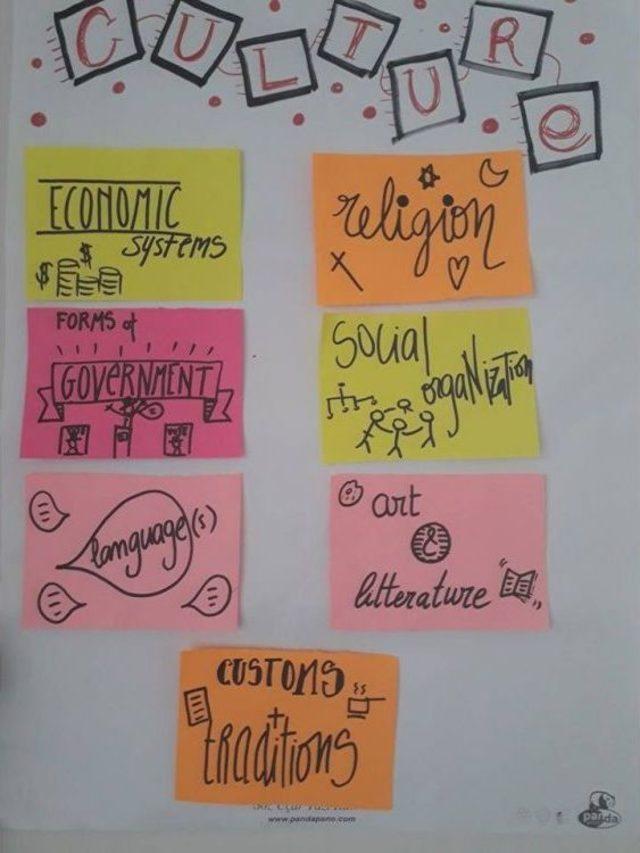 CULTURe
ECONOMIC
systems
religion
FORMS of
GOVERNMENT
SOCIAL
organization
language(s)
art
&
litterature
CUSTOMS
+
traditions
www.pandapano.com
panda